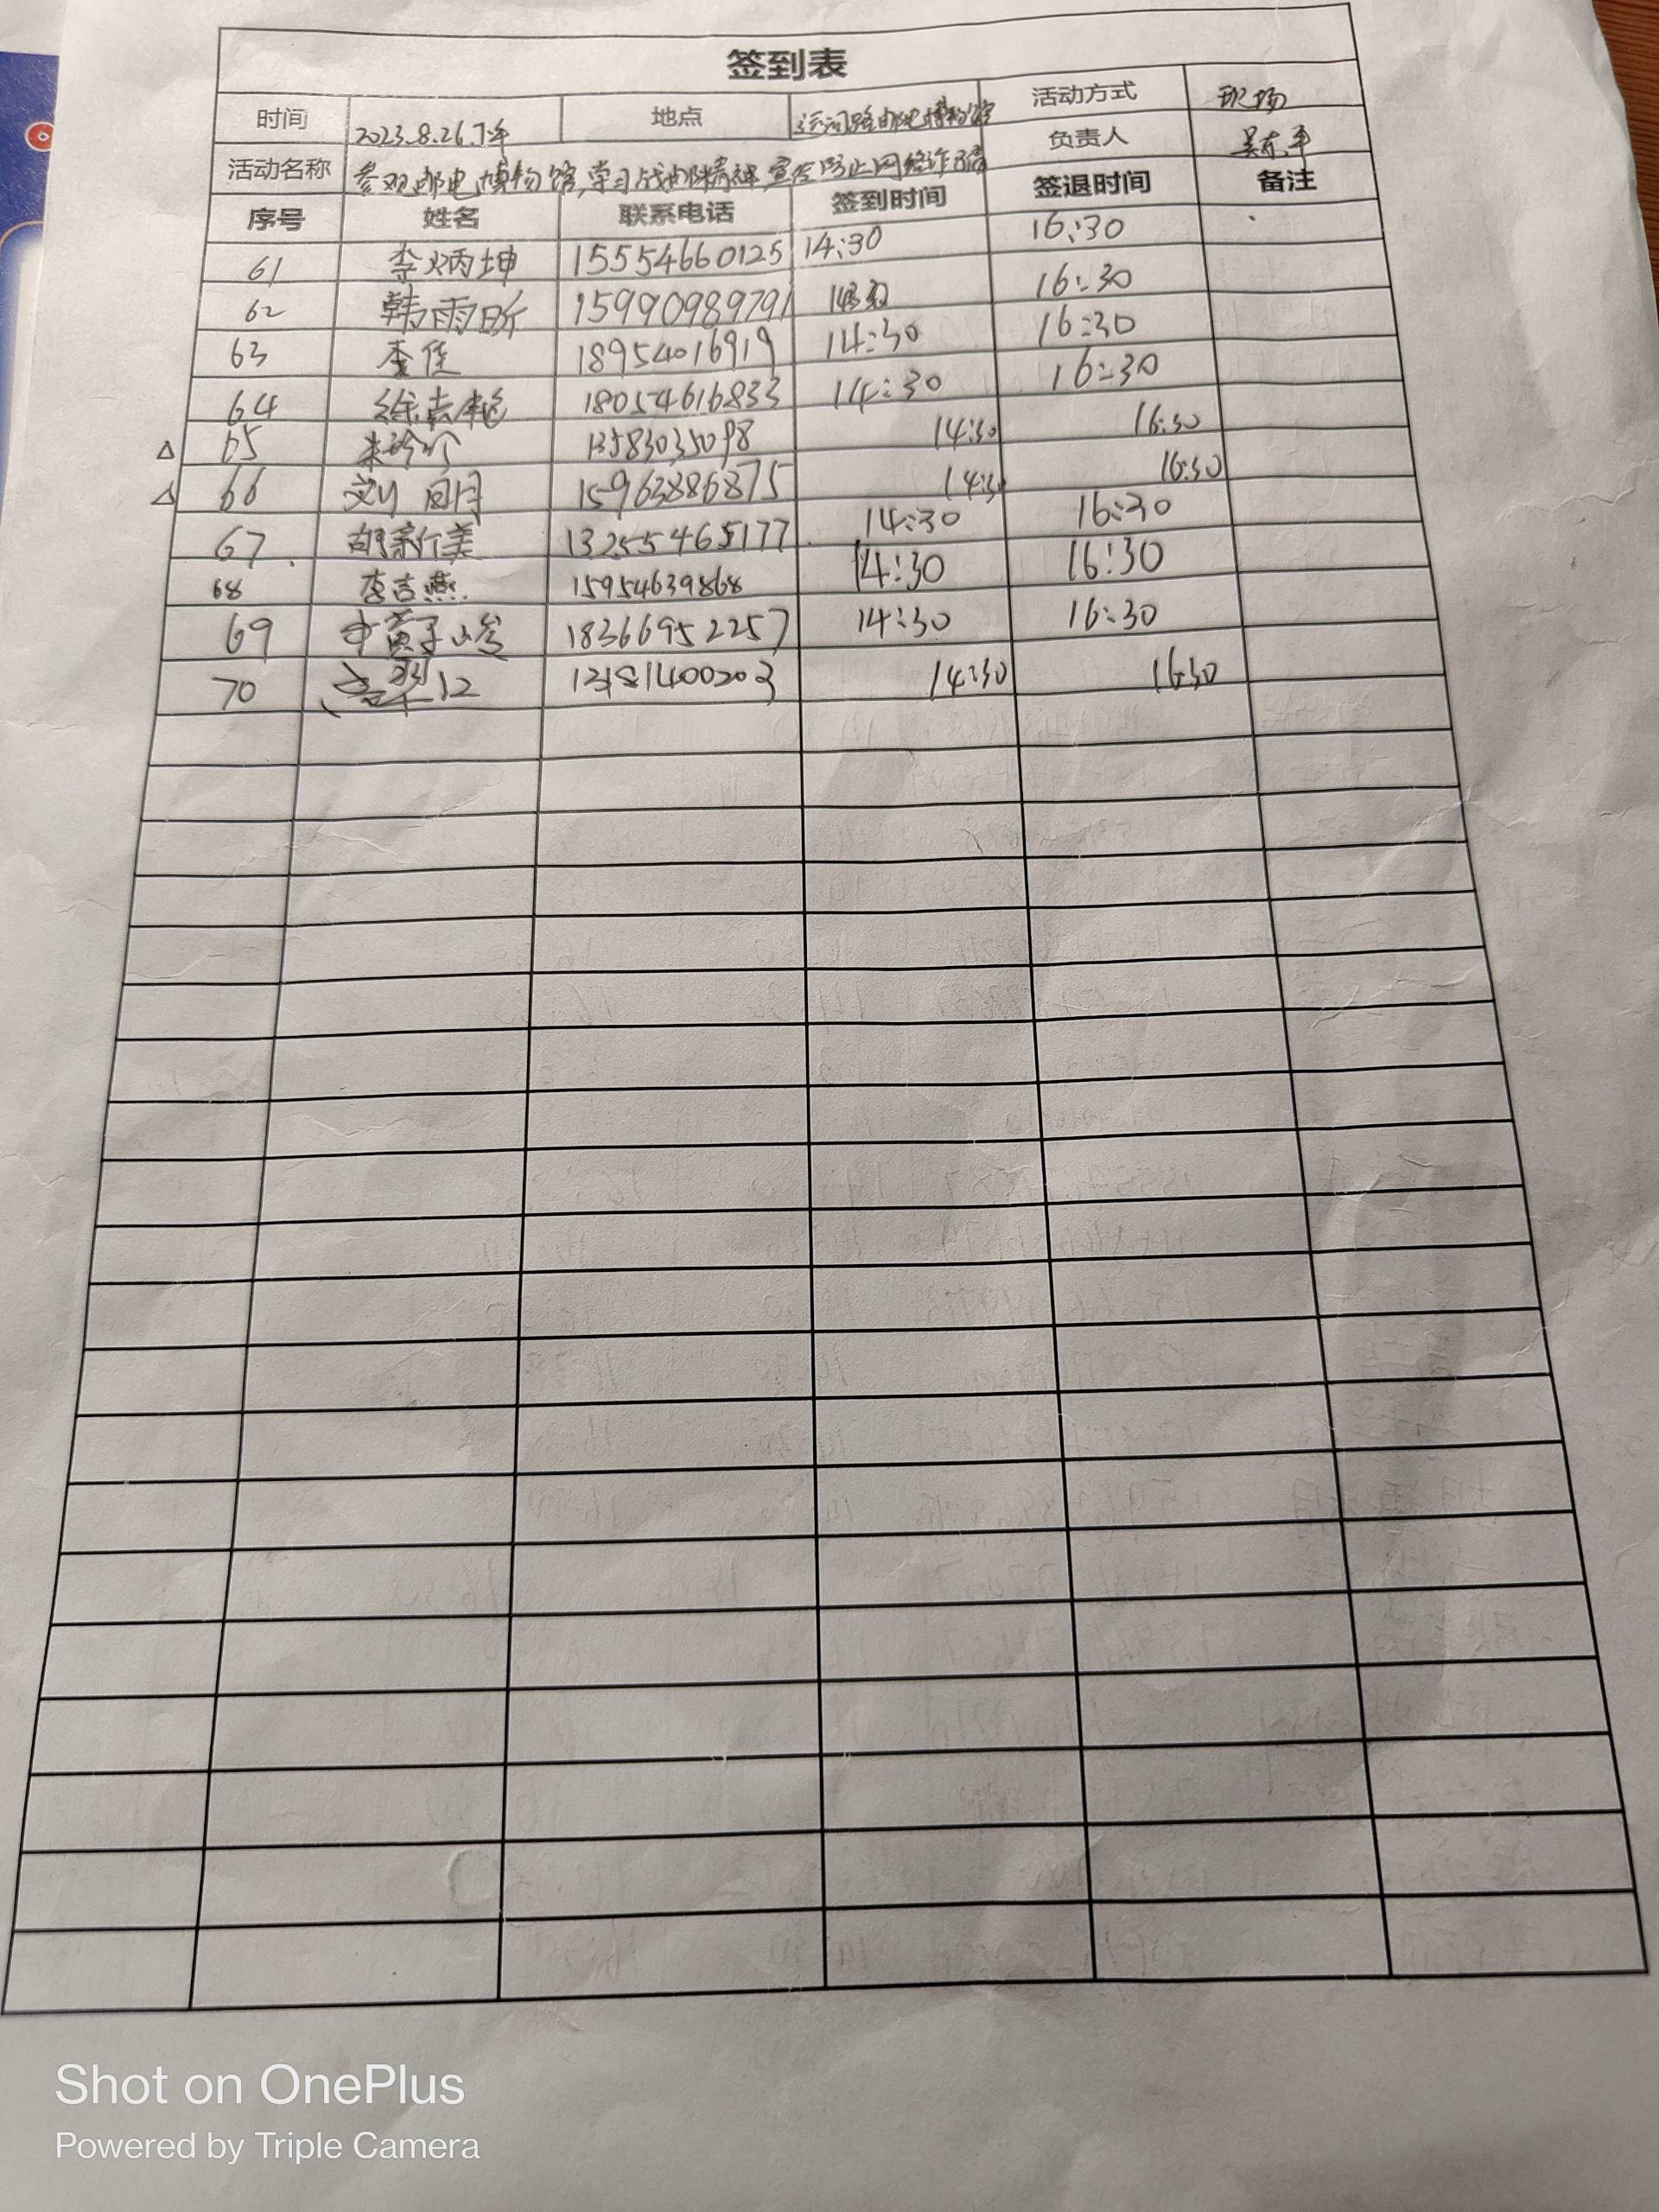 签到表
时间 2023.8.26.下午 地点 运河路邮电博物馆 活动方式 现场
活动名称 参观邮电博物馆,学习战邮精神,宣传防止网络诈骗 负责人 吴东平
序号 姓名 联系电话 签到时间 签退时间 备注
61 李炳坤 15554660125 14:30 16:30
62 韩雨昕 15990989791 16:30
63 李佳 18954016919 14:30 16:30
64 徐 18054616833 14:30 16:30
△ 65 13583035098 14:30 16:30
△ 66 刘 15963886875 14:30 16:30
67 胡新美 13255465177 14:30 16:30
68 李吉燕 15954639868 14:30 16:30
69 黄子 18366952257 14:30 16:30
70 14:30 16:30
Shot on OnePlus
Powered by Triple Camera